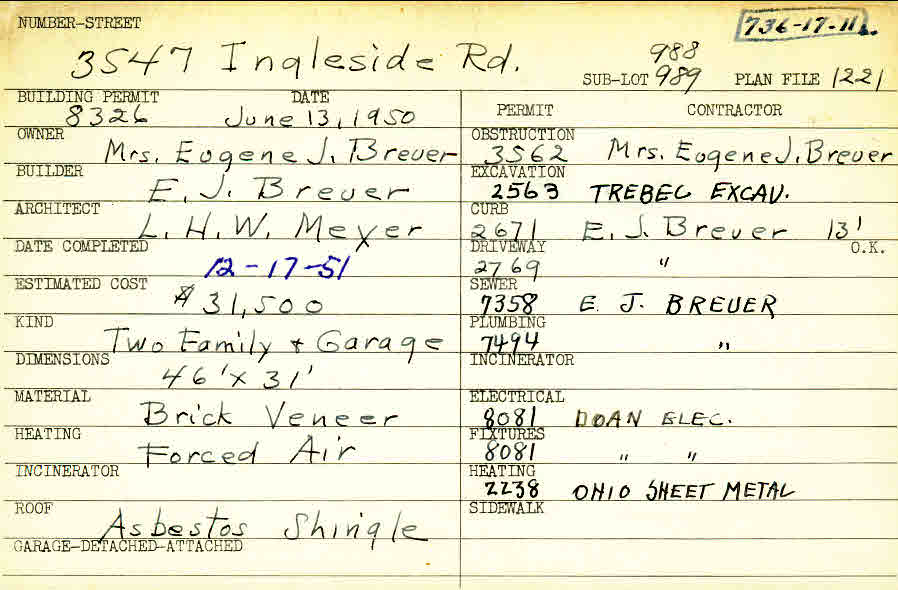 NUMBER-STREET
736-17-11
3547 Ingleside Rd.
988
SUB-LOT 989 PLAN FILE 1221
BUILDING PERMIT DATE
8326 June 13, 1950
OWNER
Mrs. Eugene J. Breuer
BUILDER
E. J. Breuer
ARCHITECT
L. H. W. Meyer
DATE COMPLETED
12-17-51
ESTIMATED COST
$31,500
KIND
Two Family + Garage
DIMENSIONS
46' x 31'
MATERIAL
Brick Veneer
HEATING
Forced Air
INCINERATOR
ROOF
Asbestos Shingle
GARAGE-DETACHED-ATTACHED
PERMIT CONTRACTOR
OBSTRUCTION
3562 Mrs. Eugene J. Breuer
EXCAVATION
2563 TREBEC EXCAV.
CURB
2671 E. J. Breuer 13'
DRIVEWAY O.K.
2769 "
SEWER
7358 E. J. BREUER
PLUMBING
7494 "
INCINERATOR
ELECTRICAL
8081 DOAN ELEC.
FIXTURES
8081 " "
HEATING
2238 OHIO SHEET METAL
SIDEWALK